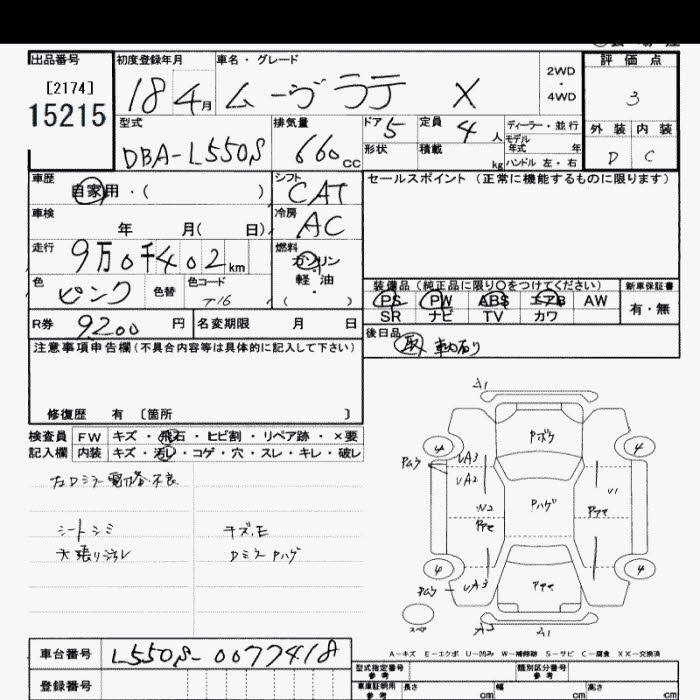 出品番号 初度登録年月 車名・グレード 評価点
[2174]
15215
18 4月 ムーヴラテ X
2WD
・
4WD
3
型式 排気量 ドア 定員 ディーラー・並行
DBA-L550S 660cc 5 4人
モデル年式 年
形状 積載 kg ハンドル 左・右
外装 内装
D C
車歴 シフト セールスポイント (正常に機能するものに限ります)
自家用・( ) CAT
車検 冷房
年 月( 日) AC
走行 燃料
9万0千402km ガソリン
軽油
( ・ )
色 色替 色コード
ピンク T16
装備品 (純正品に限り○をつけてください) 新車保証書
PS PW ABS エアB AW 有・無
SR ナビ TV カワ
R券 9200円 名変期限 月 日
後日品
取
注意事項申告欄(不具合内容等は具体的に記入して下さい)
修復歴 有 [箇所 ]
検査員 FW キズ・飛石・ヒビ割・リペア跡・×要
記入欄 内装 キズ・汚レ・コゲ・穴・スレ・キレ・破レ
シートシミ キズ,E
天張り汚レ Dミラーハゲ
A1
Pボウ
4 4
UA3
UA2
Pハゲ
U1
W2
4 4
UA3
スペア
A2 A1
A-キズ E-エクボ U-凹み W-補修跡 S-サビ C-腐食 XX-交換済
車台番号 L550S-0077418
型式指定番号 参考 類別区分番号 参考
登録番号
車庫証明用 参考 長さ cm 幅 cm 高さ cm